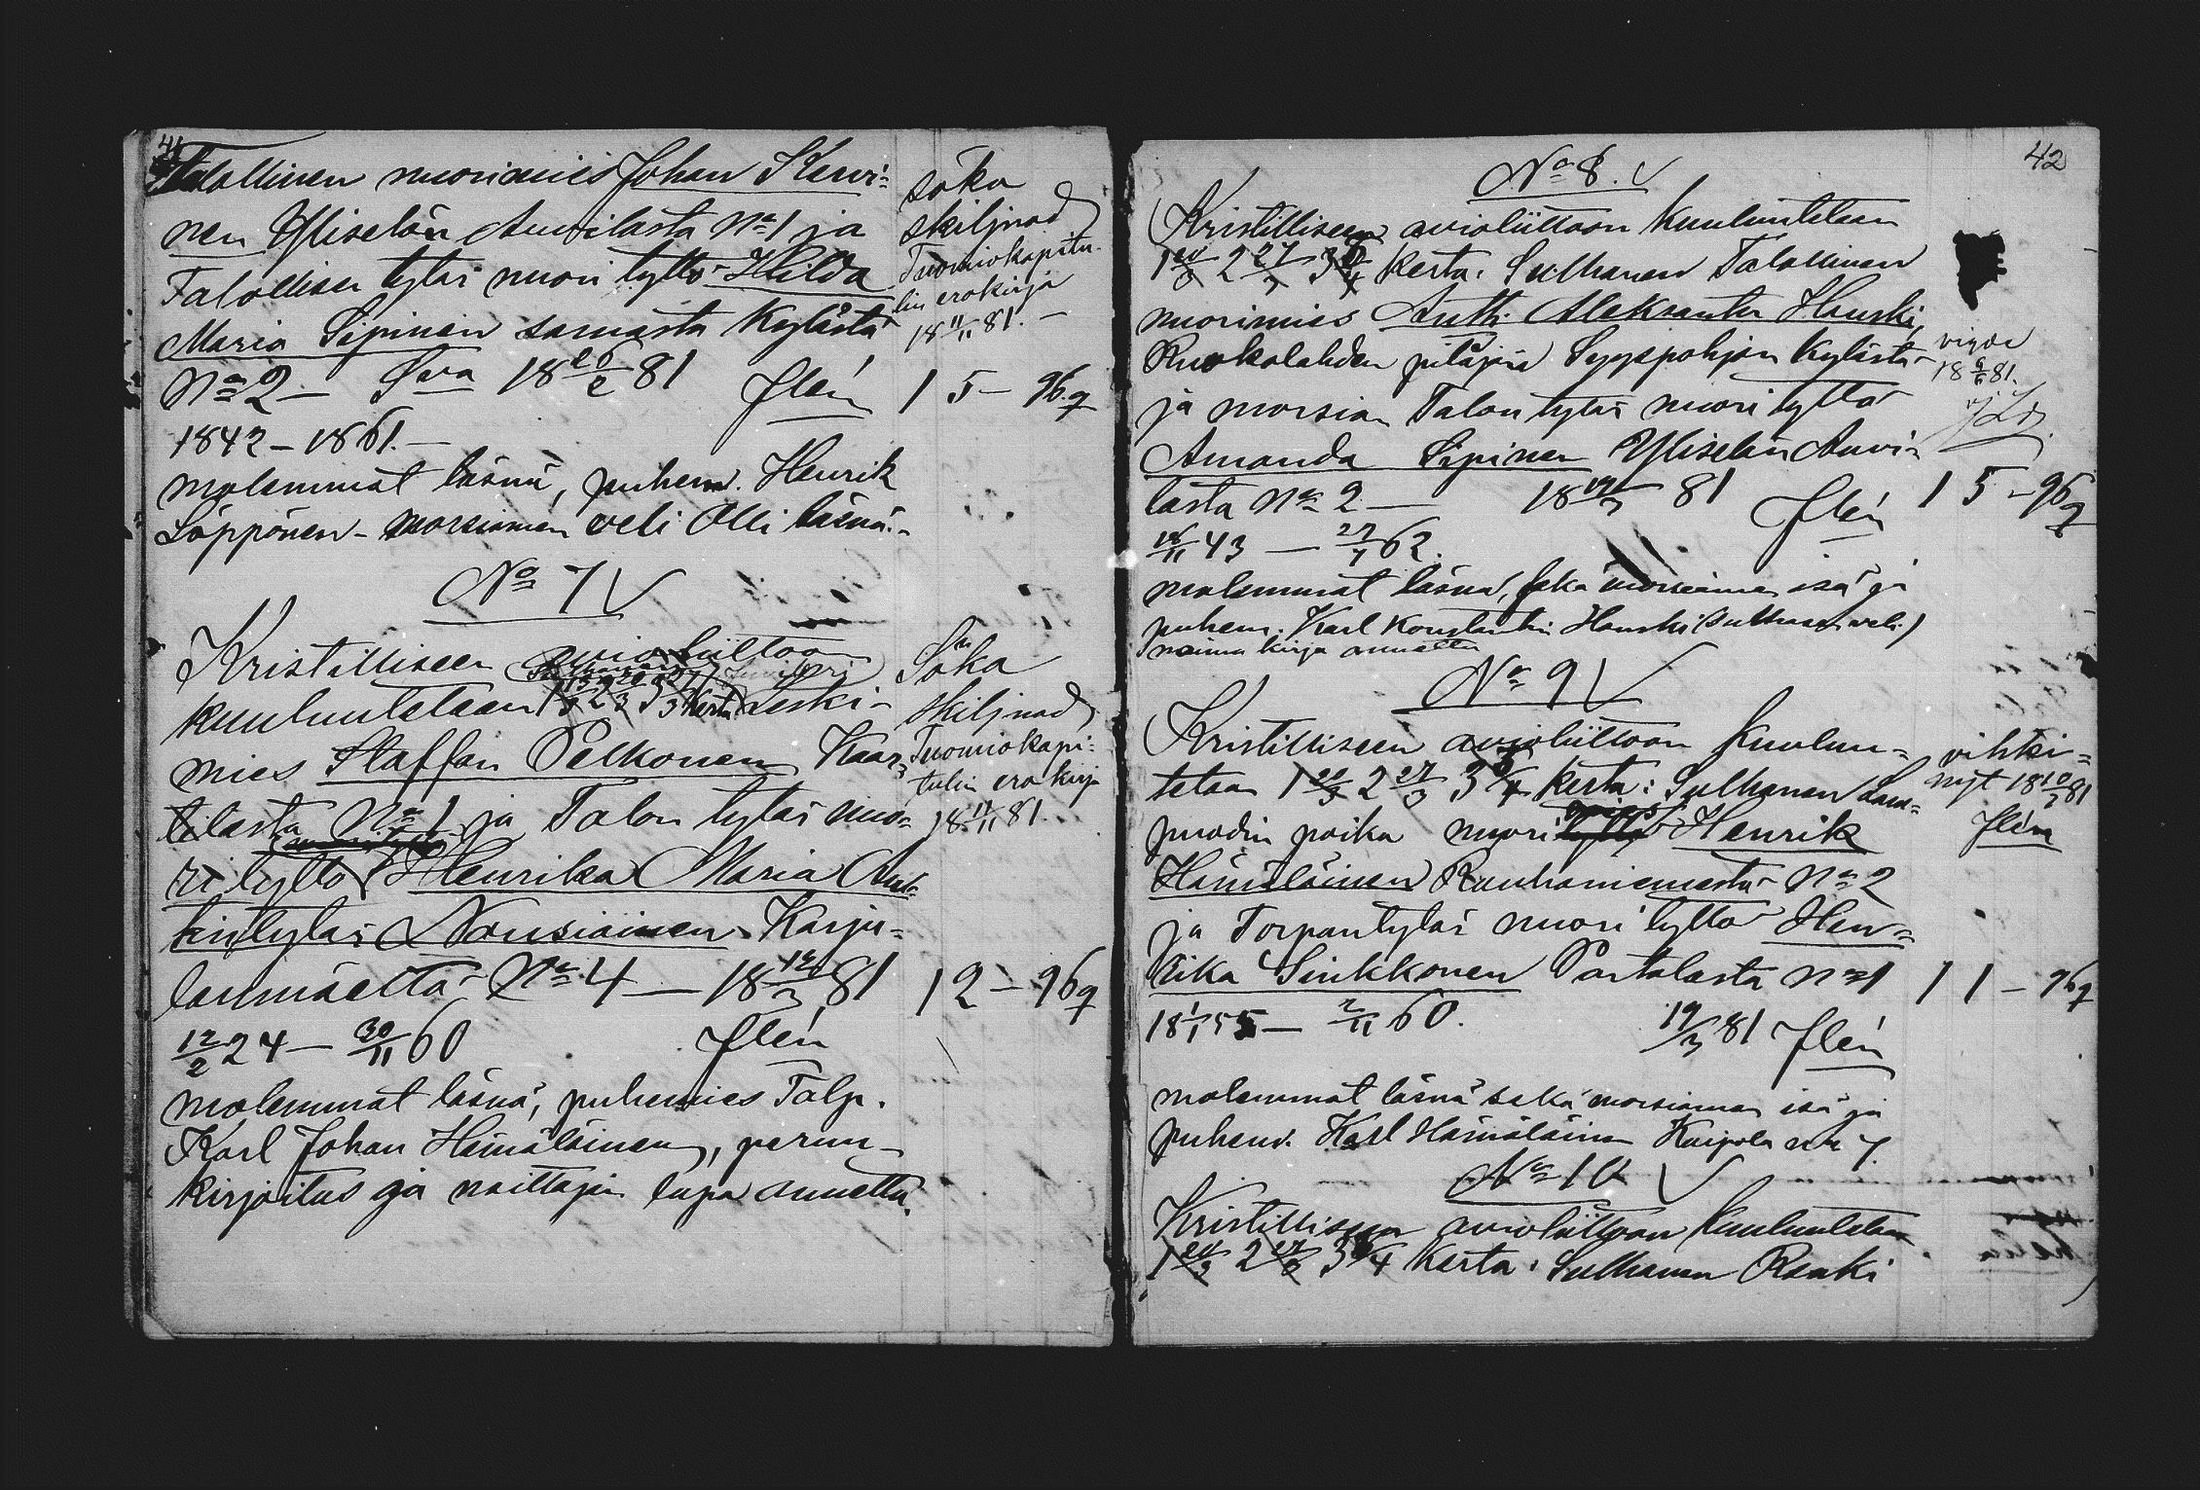 41
Talollinen nuorimies Johan Kervi-
nen Yliselän Auvilasta No 1 ja
Talollisen tytär nuori tyttö Hilda
Maria Sipinen samasta kylästä
No 2 — Sra 18 20/2 81 Flén
1842 – 1861. —
molemmat läsnä, puhem. Henrik
Löppönen – morsiamen veli Olli läsnä. –
söka
skiljnad
Tuomiokapitu-
lin erokirja
18 11/11 81. —
1 5 – 96 q
No 7 V
Kristilliseen avioliittoon
kuulutetaan 1 13/3 2 20/3 3 kerta Leski-
mies Staffan Pelkonen Kaar-
tilasta No 1 ja Talon tytär nuo-
ri tyttö Henrika Maria Ant-
tintytär Nousiainen Karju-
lanmäeltä No 4 — 18 12/3 81
12/2 24 — 30/11 60 Flén
molemmat läsnä, puhemies Talp.
Karl Johan Hämäläinen, perun-
kirjoitus ja naittajan lupa annettu.
Söka
skiljnad
Tuomiokapi-
tulin erokirja
18 11/11 81.
1 2 – 96 q
42
No 8. V
Kristilliseen avioliittoon kuulutetaan
1 20/3 2 27/3 3 3/4 kerta: Sulhanen Talollinen
nuorimies Antti Aleksanter Hauski,
Ruokolahden pitäjän Syyspohjan kylästä
ja morsian Talon tytär nuori tyttö
Amanda Sipinen Yliselän Auvi-
lasta No 2 — 18 19/3 81 Flén
16/11 43 — 27/7 62.
molemmat läsnä, sekä morsiamen isä ja
puhem. Karl Konstantin Hauski (sulhasen veli)
naima kirja annettu
vigde
18 6/6 81.
1 5 – 96 q
No 9 V
Kristilliseen avioliittoon kuulu-
tetaan 1 20/3 2 27/3 3 3/4 kerta: Sulhanen Lam-
puodin poika nuori mies Henrik
Hämäläinen Rauhaniemestä No 2
ja Torpan tytär nuori tyttö Hen-
riika Sinkkonen Partalasta No 1
18 1/1 55 — 2/11 60. 19/3 81 Flén
molemmat läsnä sekä morsiamen isä ja
puhem. Karl Hämäläinen Kaipola No 7.
vihki-
nyt 18 10/7 81
Flén
1 1 – 96 q
No 10 V
Kristilliseen avioliittoon kuulutetaan
1 20/3 2 27/3 3 3/4 kerta: Sulhanen Renki